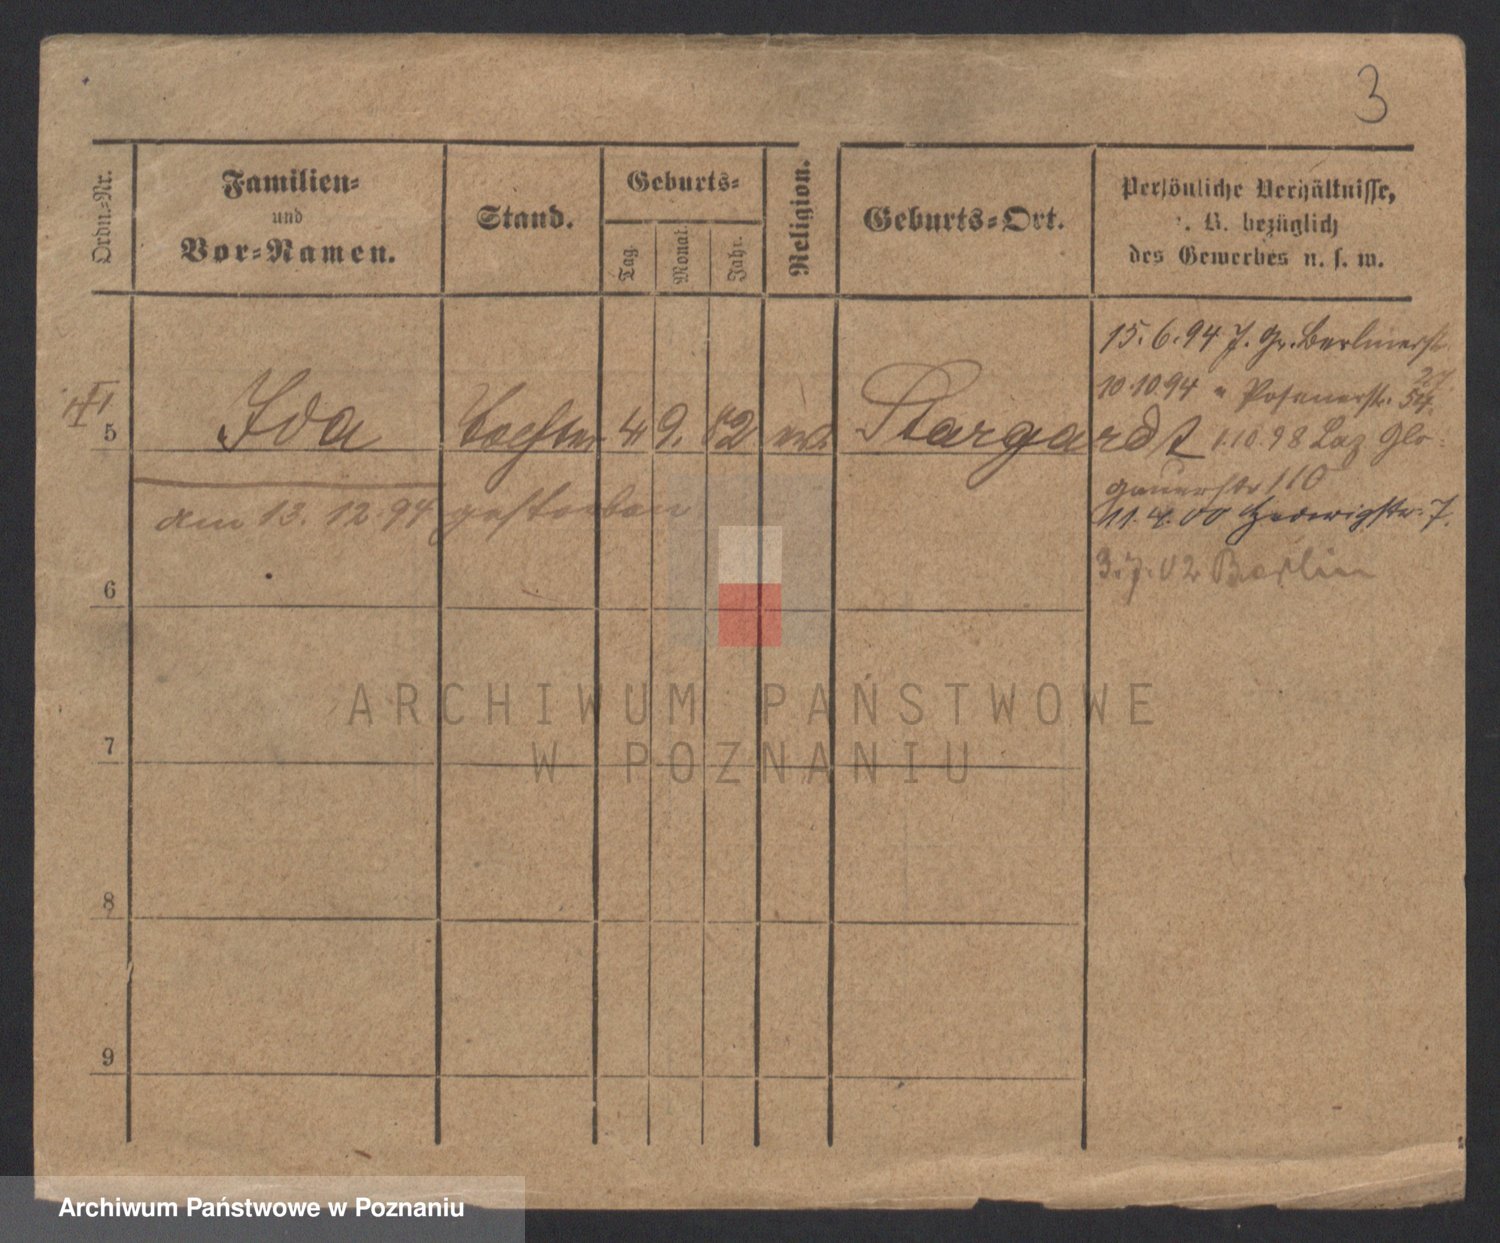 3
Ordn.-Nr.
Familien-
und
Vor-Namen.
Stand.
Geburts-
Tag.
Monat.
Jahr.
Religion.
Geburts-Ort.
Persönliche Verhältnisse,
z. B. bezüglich
des Gewerbes u. s. w.
15.6.94 J. Gr. Berlinerstr.
27
10.10.94 " Posenerstr.
5 Ida Tochter 4 9. 82 ev. Stargardt
1.10.98 Laz Glo-
gauerstr 110
am 13.12.94 gestorben
11.4.00 Hedwigstr. 7.
3.7.02 Berlin
6
7
8
9
ARCHIWUM PAŃSTWOWE
W POZNANIU
Archiwum Państwowe w Poznaniu